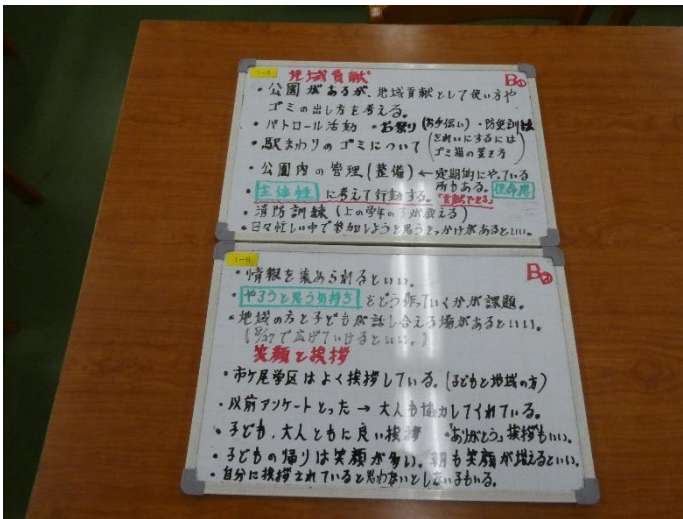 地域貢献
B①
・公園があるが、地域貢献として使い方や
ゴミの出し方を考える。
・パトロール活動 ・お祭り(お手伝い) ・防災訓練
・駅まわりのゴミについて(きれいにするには
ゴミ箱の置き方)
・公園内の管理(整備)←定期的にやっている
所もある。使命感
・主体性に考えて行動する。「貢献できる」
・消防訓練(上の学年の子が教える)
・日々忙しい中で参加しようと思うきっかけがあるといい。
B②
・情報を集められるといい。
・やろうと思う気持ちをどう作っていくかが課題。
・地域の方と子どもが話し合える場があるといい。
(8/27で広げていけるといい。)
笑顔と挨拶
・市ケ尾学区はよく挨拶している。(子どもと地域の方)
・以前アンケートとった→大人も協力してくれている。
・子ども、大人ともに良い挨拶 ・「ありがとう」挨拶もいい。
・子どもの帰りは笑顔が多い。朝も笑顔が増えるといい。
・自分に挨拶されていると思わないとしない子もいる。